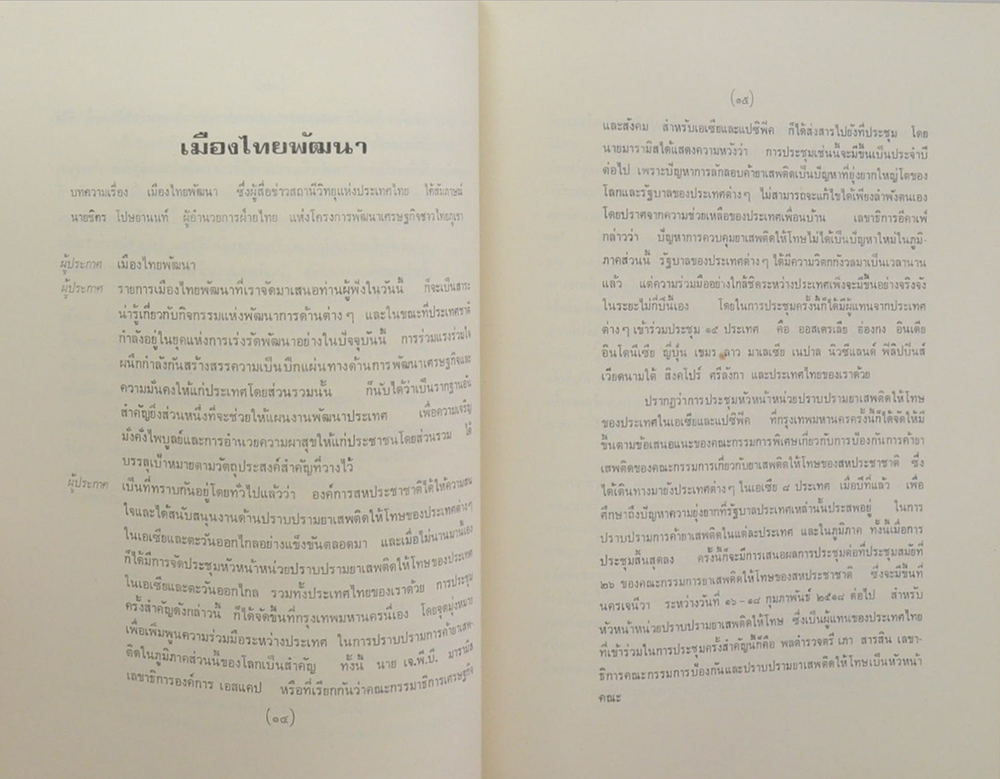 เมืองไทยพัฒนา
บทความเรื่อง เมืองไทยพัฒนา ซึ่งผู้สื่อข่าวสถานีวิทยุแห่งประเทศไทย ได้สัมภาษณ์
นายชิตร โปษยานนท์ ผู้อำนวยการฝ่ายไทย แห่งโครงการพัฒนาเศรษฐกิจชาวไทยภูเขา
ผู้ประกาศ เมืองไทยพัฒนา
ผู้ประกาศ รายการเมืองไทยพัฒนาที่เราจัดมาเสนอท่านผู้ฟังในวันนี้ ก็จะเป็นสาระ
น่ารู้เกี่ยวกับกิจกรรมแห่งพัฒนาการด้านต่าง ๆ และในขณะที่ประเทศชาติ
กำลังอยู่ในยุคแห่งการเร่งรัดพัฒนาอย่างในปัจจุบันนี้ การร่วมแรงร่วมใจ
ผนึกกำลังกันสร้างสรรความเป็นปึกแผ่นทางด้านการพัฒนาเศรษฐกิจและ
ความมั่นคงให้แก่ประเทศโดยส่วนรวมนั้น ก็นับได้ว่าเป็นรากฐานอัน
สำคัญยิ่งส่วนหนึ่งที่จะช่วยให้แผนงานพัฒนาประเทศ เพื่อความเจริญ
มั่งคั่งไพบูลย์และการอำนวยความผาสุขให้แก่ประชาชนโดยส่วนรวม ได้
บรรลุเป้าหมายตามวัตถุประสงค์สำคัญที่วางไว้
ผู้ประกาศ เป็นที่ทราบกันอยู่โดยทั่วไปแล้วว่า องค์การสหประชาชาติได้ให้ความสน
ใจและได้สนับสนุนงานด้านปราบปรามยาเสพติดให้โทษของประเทศต่างๆ
ในเอเซียและตะวันออกไกลอย่างแข็งขันตลอดมา และเมื่อไม่นานมานี้เอง
ก็ได้มีการจัดประชุมหัวหน้าหน่วยปราบปรามยาเสพติดให้โทษของประเทศ
ในเอเซียและตะวันออกไกล รวมทั้งประเทศไทยของเราด้วย การประชุม
ครั้งสำคัญดังกล่าวนี้ ก็ได้จัดขึ้นที่กรุงเทพมหานครนี่เอง โดยจุดมุ่งหมาย
เพื่อเพิ่มพูนความร่วมมือระหว่างประเทศ ในการปราบปรามการค้ายาเสพ-
ติดในภูมิภาคส่วนนี้ของโลกเป็นสำคัญ ทั้งนี้ นาย เจ.พี.บี. มารามิส
เลขาธิการองค์การ เอสแคป หรือที่เรียกกันว่าคณะกรรมาธิการเศรษฐกิจ
(๑๔)
(๑๕)
และสังคม สำหรับเอเซียและแปซิฟิค ก็ได้ส่งสารไปยังที่ประชุม โดย
นายมารามิสได้แสดงความหวังว่า การประชุมเช่นนี้จะมีขึ้นเป็นประจำปี
ต่อไป เพราะปัญหาการลักลอบค้ายาเสพติดเป็นปัญหาที่ยุ่งยากใหญ่โตของ
โลกและรัฐบาลของประเทศต่างๆ ไม่สามารถจะแก้ไขได้เพียงลำพังตนเอง
โดยปราศจากความช่วยเหลือของประเทศเพื่อนบ้าน เลขาธิการอีคาเฟ่
กล่าวว่า ปัญหาการควบคุมยาเสพติดให้โทษไม่ได้เป็นปัญหาใหม่ในภูมิ-
ภาคส่วนนี้ รัฐบาลของประเทศต่างๆ ได้มีความวิตกกังวลมาเป็นเวลานาน
แล้ว แต่ความร่วมมืออย่างใกล้ชิดระหว่างประเทศเพิ่งจะมีขึ้นอย่างจริงจัง
ในระยะไม่กี่ปีนี้เอง โดยในการประชุมครั้งนี้ก็ได้มีผู้แทนจากประเทศ
ต่างๆ เข้าร่วมประชุม ๑๕ ประเทศ คือ ออสเตรเลีย ฮ่องกง อินเดีย
อินโดนีเซีย ญี่ปุ่น เขมร ลาว มาเลเซีย เนปาล นิวซีแลนด์ ฟิลิปปินส์
เวียดนามใต้ สิงคโปร์ ศรีลังกา และประเทศไทยของเราด้วย
ปรากฏว่าการประชุมหัวหน้าหน่วยปราบปรามยาเสพติดให้โทษ
ของประเทศในเอเซียและแปซิฟิค ที่กรุงเทพมหานครครั้งนี้ก็ได้จัดให้มี
ขึ้นตามข้อเสนอแนะของคณะกรรมการพิเศษเกี่ยวกับการป้องกันการค้ายา
เสพติดของคณะกรรมการเกี่ยวกับยาเสพติดให้โทษของสหประชาชาติ ซึ่ง
ได้เดินทางมายังประเทศต่างๆ ในเอเซีย ๘ ประเทศ เมื่อปีที่แล้ว เพื่อ
ศึกษาถึงปัญหาความยุ่งยากที่รัฐบาลประเทศเหล่านั้นประสพอยู่ ในการ
ปราบปรามการค้ายาเสพติดในแต่ละประเทศ และในภูมิภาค ทั้งนี้เมื่อการ
ประชุมสิ้นสุดลง ครั้งนี้ก็จะมีการเสนอผลการประชุมต่อที่ประชุมสมัยที่
๒๖ ของคณะกรรมการยาเสพติดให้โทษของสหประชาชาติ ซึ่งจะมีขึ้นที่
นครเจนีวา ระหว่างวันที่ ๑๖-๑๘ กุมภาพันธ์ ๒๕๑๘ ต่อไป สำหรับ
หัวหน้าหน่วยปราบปรามยาเสพติดให้โทษ ซึ่งเป็นผู้แทนของประเทศไทย
ที่เข้าร่วมในการประชุมครั้งสำคัญนี้ก็คือ พลตำรวจตรี เภา สารสิน เลขา-
ธิการคณะกรรมการป้องกันและปราบปรามยาเสพติดให้โทษเป็นหัวหน้า
คณะ